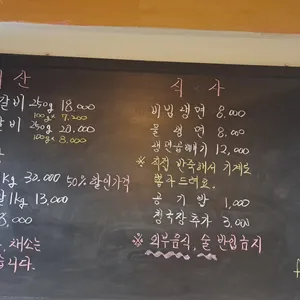 산
갈비 250g 18,000
100g× 7,200
갈비 250g 20,000
100g× 8,000
1kg 32,000 50% 할인가격
1kg 13,000
3,000
채소는
습니다.
식 사
비빔생면 8,000
물 생면 8,000
생면곱빼기 12,000
※ 직접 반죽해서 기계로
뽑아드려요.
공기밥 1,000
청국장추가 3,000
※ 외부음식, 술 반입금지